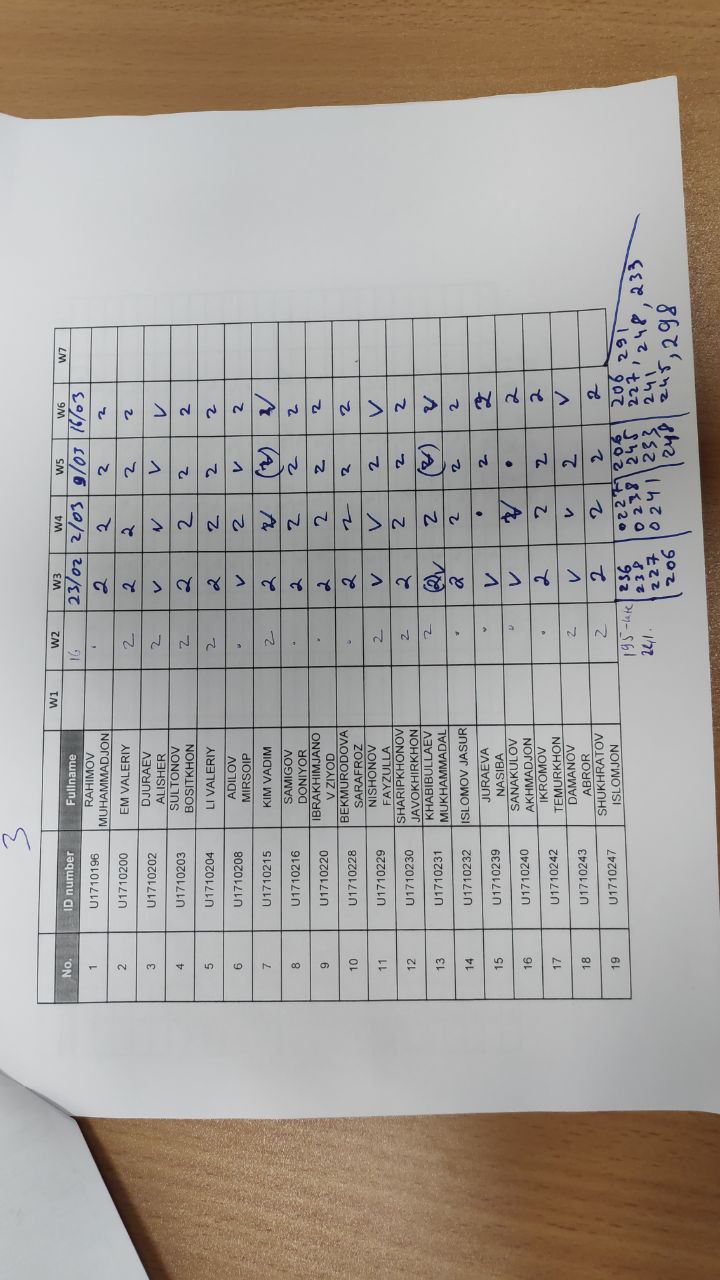 3
No. ID number Fullname W1 W2 W3 W4 W5 W6 W7
16 23/02 2/03 9/03 16/03
1 U1710196 RAHIMOV MUHAMMADJON . 2 2 2 2
2 U1710200 EM VALERIY 2 2 2 2 2
3 U1710202 DJURAEV ALISHER 2 v v v v
4 U1710203 SULTONOV BOSITKHON 2 2 2 2 2
5 U1710204 LI VALERIY 2 2 2 2 2
6 U1710208 ADILOV MIRSOIP . v 2 v 2
7 U1710215 KIM VADIM 2 2
8 U1710216 SAMIGOV DONIYOR . 2 2 2 2
9 U1710220 IBRAKHIMJANO V ZIYOD . 2 2 2 2
10 U1710228 BEKMURODOVA SARAFROZ . 2 2 2 2
11 U1710229 NISHONOV FAYZULLA 2 v v 2 v
12 U1710230 SHARIPKHONOV JAVOKHIRKHON 2 2 2 2 2
13 U1710231 KHABIBULLAEV MUKHAMMADAL 2 2
14 U1710232 ISLOMOV JASUR . 2 2 2 2
15 U1710239 JURAEVA NASIBA . v . 2 2
16 U1710240 SANAKULOV AKHMADJON . v . 2
17 U1710242 IKROMOV TEMURKHON . 2 2 2 2
18 U1710243 DAMANOV ABROR 2 v v 2 v
19 U1710247 SHUKHRATOV ISLOMJON 2 2 2 2 2
195-late 236 0227 206 206 291
241. 238 0238 245 227, 248, 233
227 0241 233 241
206 248 245, 298